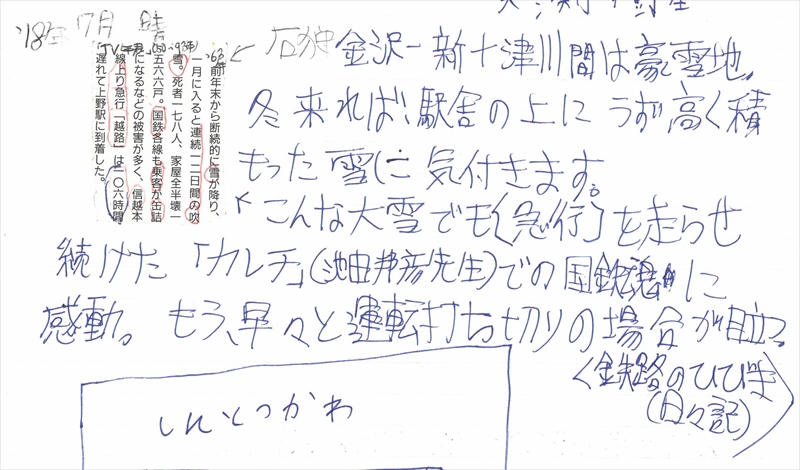 '18年7月 晴
前年末から断続的に雪が降り、
一月に入ると連続一二日間の吹
雪。死者一七八人、家屋全半壊一
五六六戸。国鉄各線も乗客が缶詰
になるなどの被害が多く、信越本
線上り急行「越路」は一〇六時間
遅れて上野駅に到着した。
石狩
金沢ー新十津川間は豪雪地。
冬来れば、駅舎の上にうず高く積
もった雪に気付きます。
こんな大雪でも〔急行〕を走らせ
続けた「カレチ」(池田邦彦先生)での国鉄魂に
感動。もう、早々と運転打ち切りの場合が目立つ
<鉄路のひびき
(日々記)>
しんとつかわ